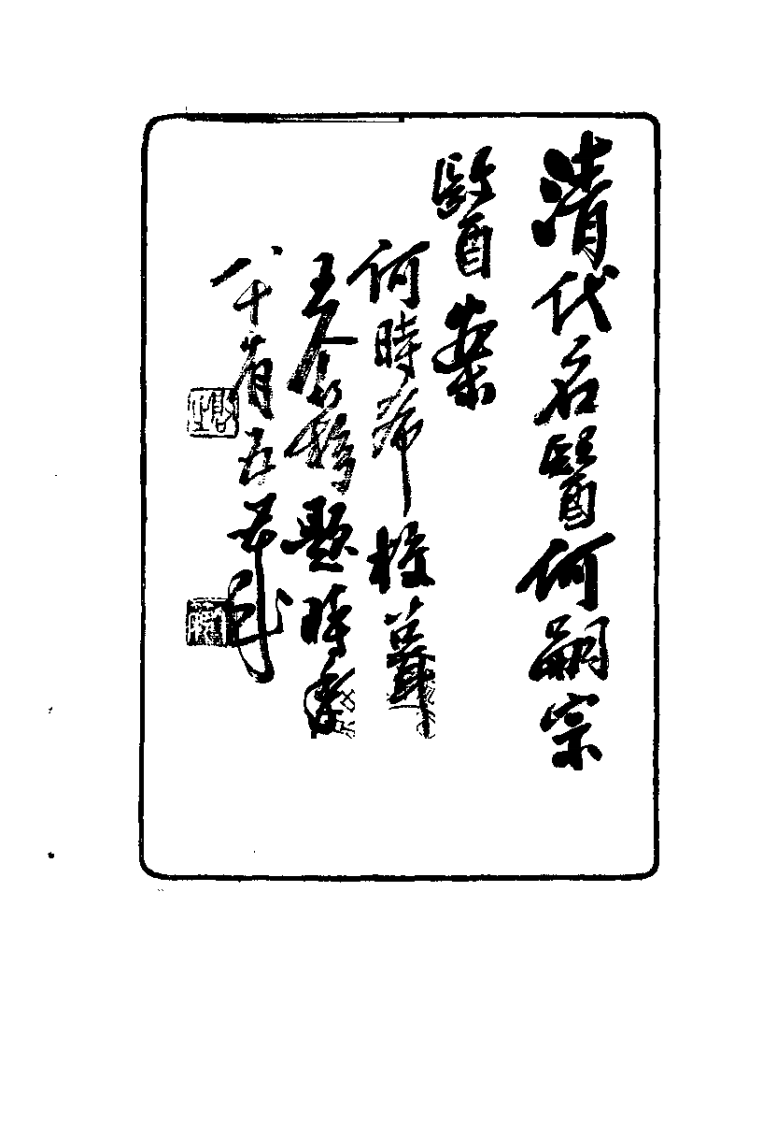 清代名醫何嗣宗
醫案
何時希校
王个簃題時年
八十有五